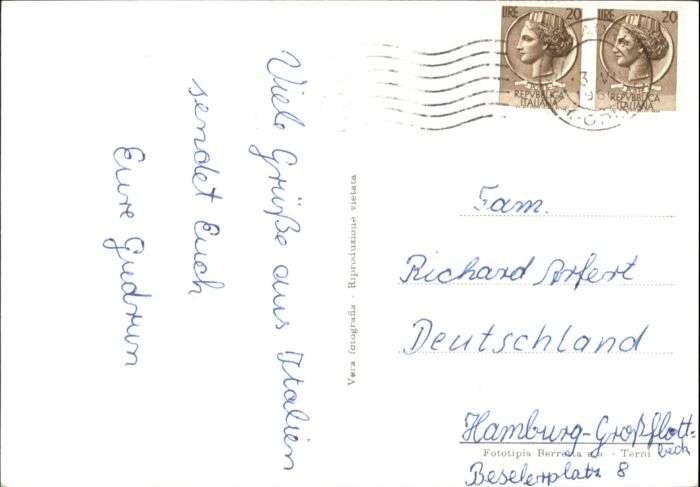 Viele Grüße aus Italien
sendet Euch
Eure Gudrun
Vera fotografia - Riproduzione vietata
LIRE 20
REPVBBLICA
ITALIANA
LIRE 20
REPVBBLICA
ITALIANA
Fam.
Richard Arfert
Deutschland
Hamburg-Großflott-
beck
Fototipia Berretta s.a. - Terni
Beselerplatz 8